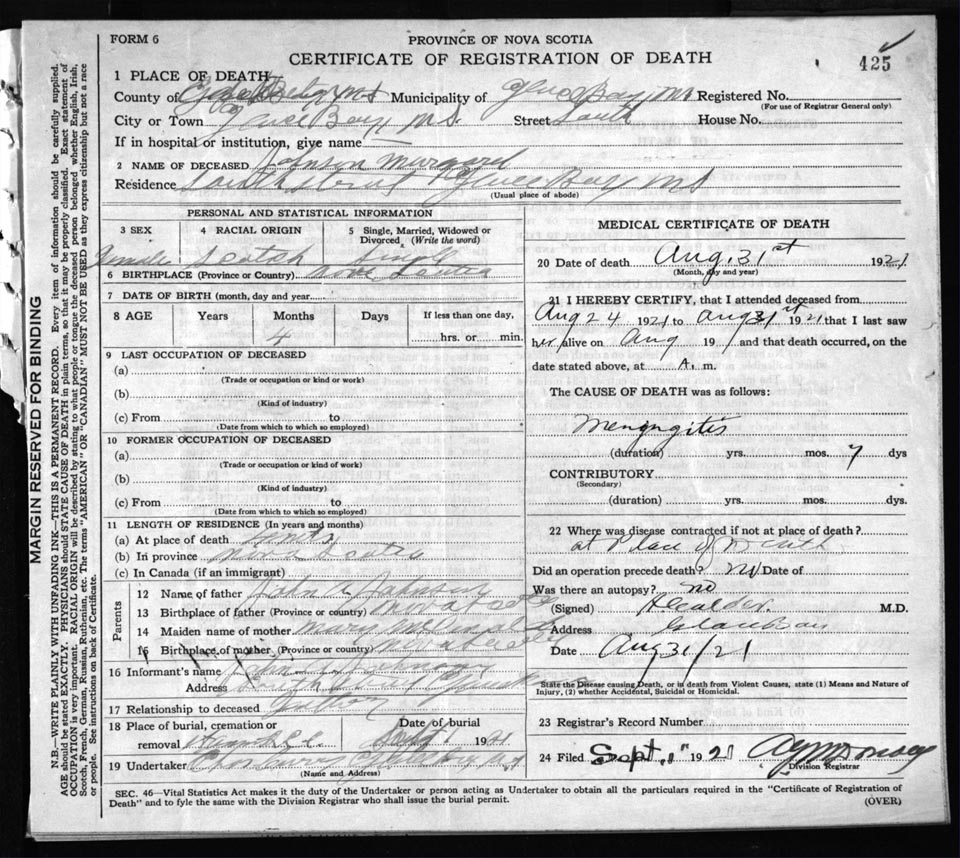 FORM 6
PROVINCE OF NOVA SCOTIA
CERTIFICATE OF REGISTRATION OF DEATH
425
1 PLACE OF DEATH
County of Cape Breton NS Municipality of Glace Bay NS Registered No.
(For use of Registrar General only)
City or Town Glace Bay NS Street South House No.
If in hospital or institution, give name
2 NAME OF DECEASED Johnson Margaret
Residence South Street Glace Bay NS
(Usual place of abode)
PERSONAL AND STATISTICAL INFORMATION
3 SEX 4 RACIAL ORIGIN 5 Single, Married, Widowed or Divorced (Write the word)
Female Scotch Single
6 BIRTHPLACE (Province or Country) Nova Scotia
7 DATE OF BIRTH (month, day and year)
8 AGE Years Months Days If less than one day,
4 hrs. or min.
9 LAST OCCUPATION OF DECEASED
(a)
(Trade or occupation or kind or work)
(b)
(Kind of industry)
(c) From to
(Date from which to which so employed)
10 FORMER OCCUPATION OF DECEASED
(a)
(Trade or occupation or kind of work)
(b)
(Kind of industry)
(c) From to
(Date from which to which so employed)
11 LENGTH OF RESIDENCE (In years and months)
(a) At place of death
(b) In province Nova Scotia
(c) In Canada (if an immigrant)
Parents
12 Name of father John A Johnson
13 Birthplace of father (Province or country) Nova Scotia
14 Maiden name of mother Mary
15 Birthplace of mother (Province or country)
16 Informant's name John A Johnson
Address South Street Glace Bay
17 Relationship to deceased Father
18 Place of burial, cremation or removal
Date of burial Sept 1 1921
19 Undertaker
(Name and Address)
MEDICAL CERTIFICATE OF DEATH
20 Date of death Aug. 31st 1921
(Month, day and year)
21 I HEREBY CERTIFY, that I attended deceased from
Aug 24 1921 to Aug 31st 1921 that I last saw
her alive on Aug 19 and that death occurred, on the
date stated above, at A. m.
The CAUSE OF DEATH was as follows:
Menengites
(duration) yrs. mos. 7 dys
CONTRIBUTORY
(Secondary)
(duration) yrs. mos. dys.
22 Where was disease contracted if not at place of death?
at Place of Death
Did an operation precede death? No Date of
Was there an autopsy? no
(Signed) M.D.
Address Glace Bay
Date Aug 31/21
State the Disease causing Death, or in death from Violent Causes, state (1) Means and Nature of
Injury, (2) whether Accidental, Suicidal or Homicidal.
23 Registrar's Record Number
24 Filed Sept. 1" 1921
Division Registrar
SEC. 46—Vital Statistics Act makes it the duty of the Undertaker or person acting as Undertaker to obtain all the particulars required in the "Certificate of Registration of
Death" and to fyle the same with the Division Registrar who shall issue the burial permit.
(OVER)
MARGIN RESERVED FOR BINDING
N.B.—WRITE PLAINLY WITH UNFADING INK—THIS IS A PERMANENT RECORD. Every item of information should be carefully supplied.
AGE should be stated EXACTLY. PHYSICIANS should STATE CAUSE OF DEATH in plain terms, so that it may be properly classified. Exact statement of
OCCUPATION is very important. RACIAL ORIGIN will be described by stating to what people or tongue the deceased person belonged whether English, Irish,
Scotch, French, German, Russian, Ruthenian, etc. The terms "AMERICAN" OR "CANADIAN" MUST NOT BE USED as they express citizenship but not a race
or people. See instructions on back of Certificate.